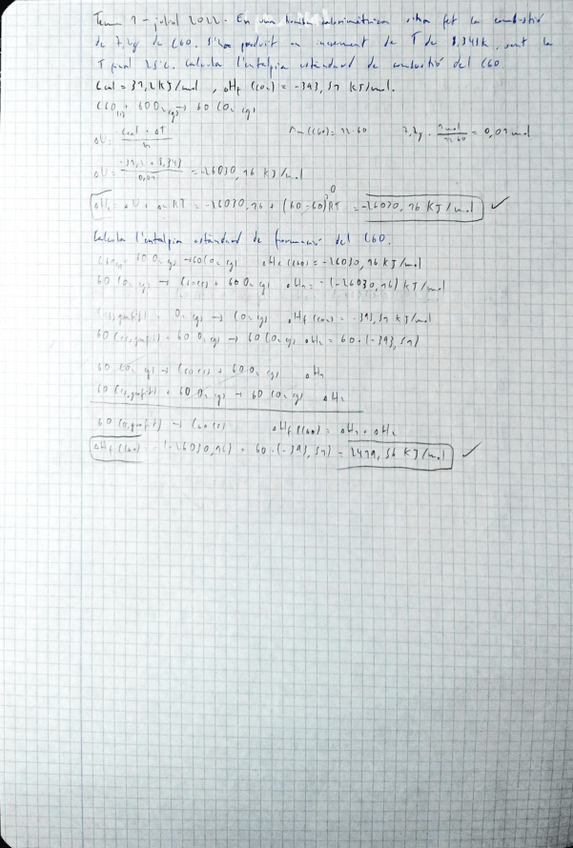 Tema 1 - juliol 2022. En una bomba calorimètrica s'ha fet la combustió
de 7,2g de C60. S'ha produït un increment de T de 8,343K, sent la
T final 25ºC. Calcula l'entalpia estàndard de combustió del C60.
Ccal = 31,2 kJ/mol, ΔHf (CO2) = -393,51 kJ/mol.
C60(s) + 60O2(g) → 60 CO2(g)
Mm(C60) = 12·60 7,2g · 1mol/12·60 = 0,01mol
ΔU = -Ccal·ΔT/n
ΔU = -31,2·8,343/0,01 = -26030,16 kJ/mol
ΔHc = ΔU + ΔnRT = -26030,16 + (60-60)RT = -26030,16 kJ/mol
0
Calcula l'entalpia estàndard de formació del C60.
C60(s) + 60 O2(g) → 60CO2(g) ΔHc(C60) = -26030,16 kJ/mol
60 CO2(g) → C60(s) + 60 O2(g) ΔH1 = -(-26030,16) kJ/mol
C(s,grafit) + O2(g) → CO2(g) ΔHf(CO2) = -393,51 kJ/mol
60 C(s,grafit) + 60 O2(g) → 60 CO2(g) ΔH2 = 60·(-393,51)
60 CO2(g) → C60(s) + 60 O2(g) ΔH1
60 C(s,grafit) + 60 O2(g) → 60 CO2(g) ΔH2
60 C(s,grafit) → C60(s) ΔHf(C60) = ΔH1 + ΔH2
ΔHf(C60) = -(-26030,16) + 60·(-393,51) = 2419,56 kJ/mol